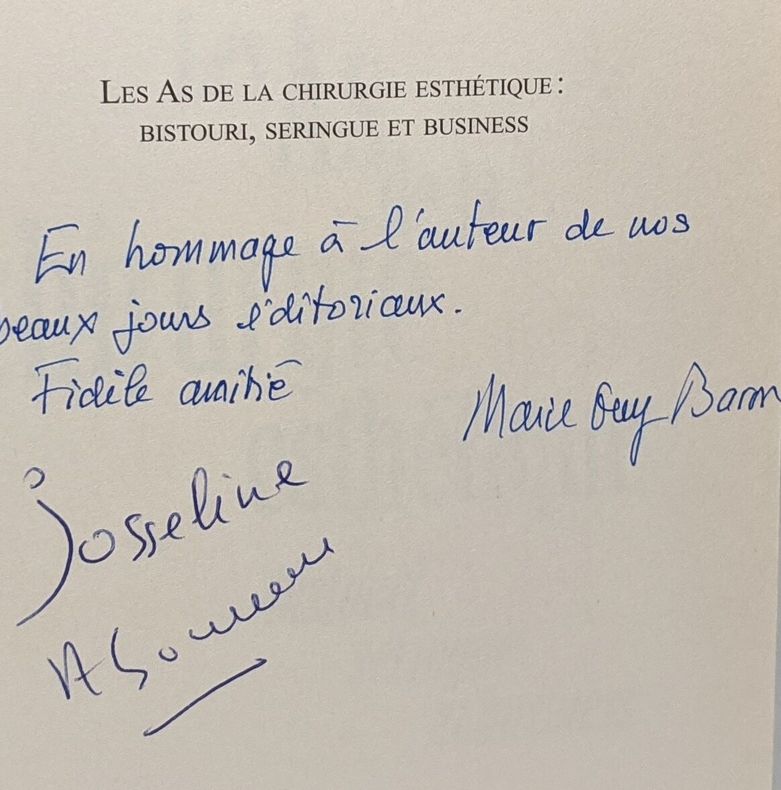 LES AS DE LA CHIRURGIE ESTHÉTIQUE :
BISTOURI, SERINGUE ET BUSINESS
En hommage à l'auteur de nos
beaux jours éditoriaux.
Fidèle amitié
Marie Guy Baron
Josseline